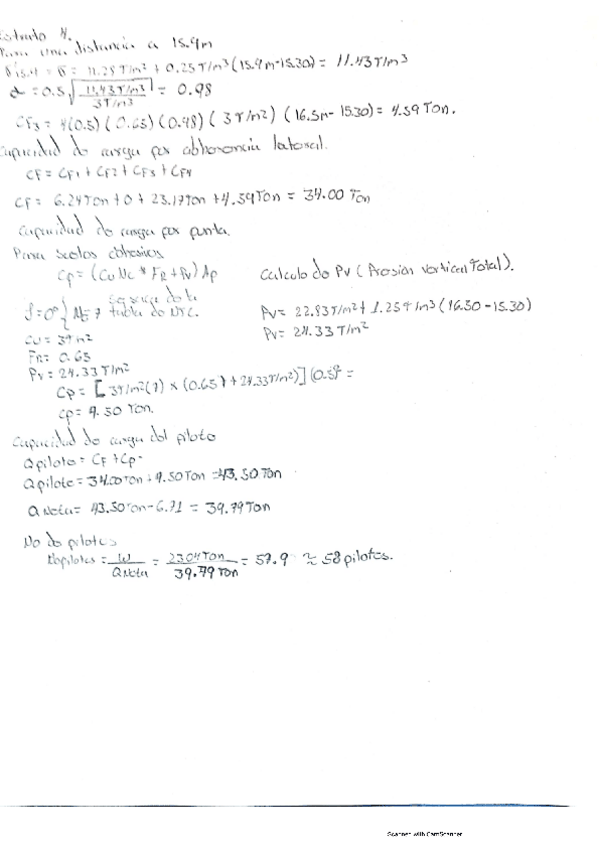 Estrato 4.
Para una distancia a 15.9m
= σ = 11.25T/m² + 0.25T/m³(15.9m-15.30) = 11.43T/m³
α = 0.5 √(11.43T/m³ / 3T/m³) = 0.98
CF3 = 4(0.5)(0.65)(0.98)(3T/m²)(16.5m-15.30) = 4.59 Ton.
Capacidad de carga por adherencia lateral.
CF = CF1 + CF2 + CF3 + CF4
CF = 6.24Ton + 0 + 23.17Ton + 4.59Ton = 34.00 Ton
Capacidad de carga por punta.
Para suelos cohesivos
Cp = (Cu Nc * FR + Pv) Ap
Calculo de Pv (Presión Vertical Total).
=0° } Nc = 7 de la tabla de NTC.
Pv = 22.83T/m² + 1.25T/m³ (16.50-15.30)
Pv = 24.33 T/m²
Cu = 3T m²
FR = 0.65
Pv = 24.33 T/m²
Cp = [3T/m²(7) x (0.65) + 24.33T/m²)](0.5)² =
Cp = 9.50 Ton.
Capacidad de carga del pilote
Q pilote = CF + Cp
Q pilote = 34.00Ton + 9.50Ton = 43.50Ton
Q Neta = 43.50Ton - 6.71 = 39.79Ton
No de pilotes
No pilotes = W / Q Neta = 2304Ton / 39.79Ton = 57.9 ≈ 58 pilotes.
Scanned with CamScanner